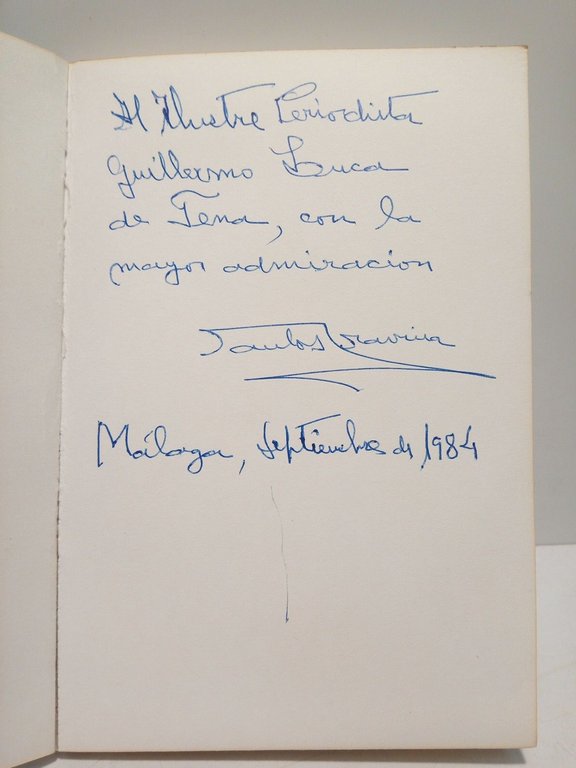 Al Ilustre Periodista
Guillermo Luca
de Tena, con la
mayor admiracion
Málaga, septiembre de 1984